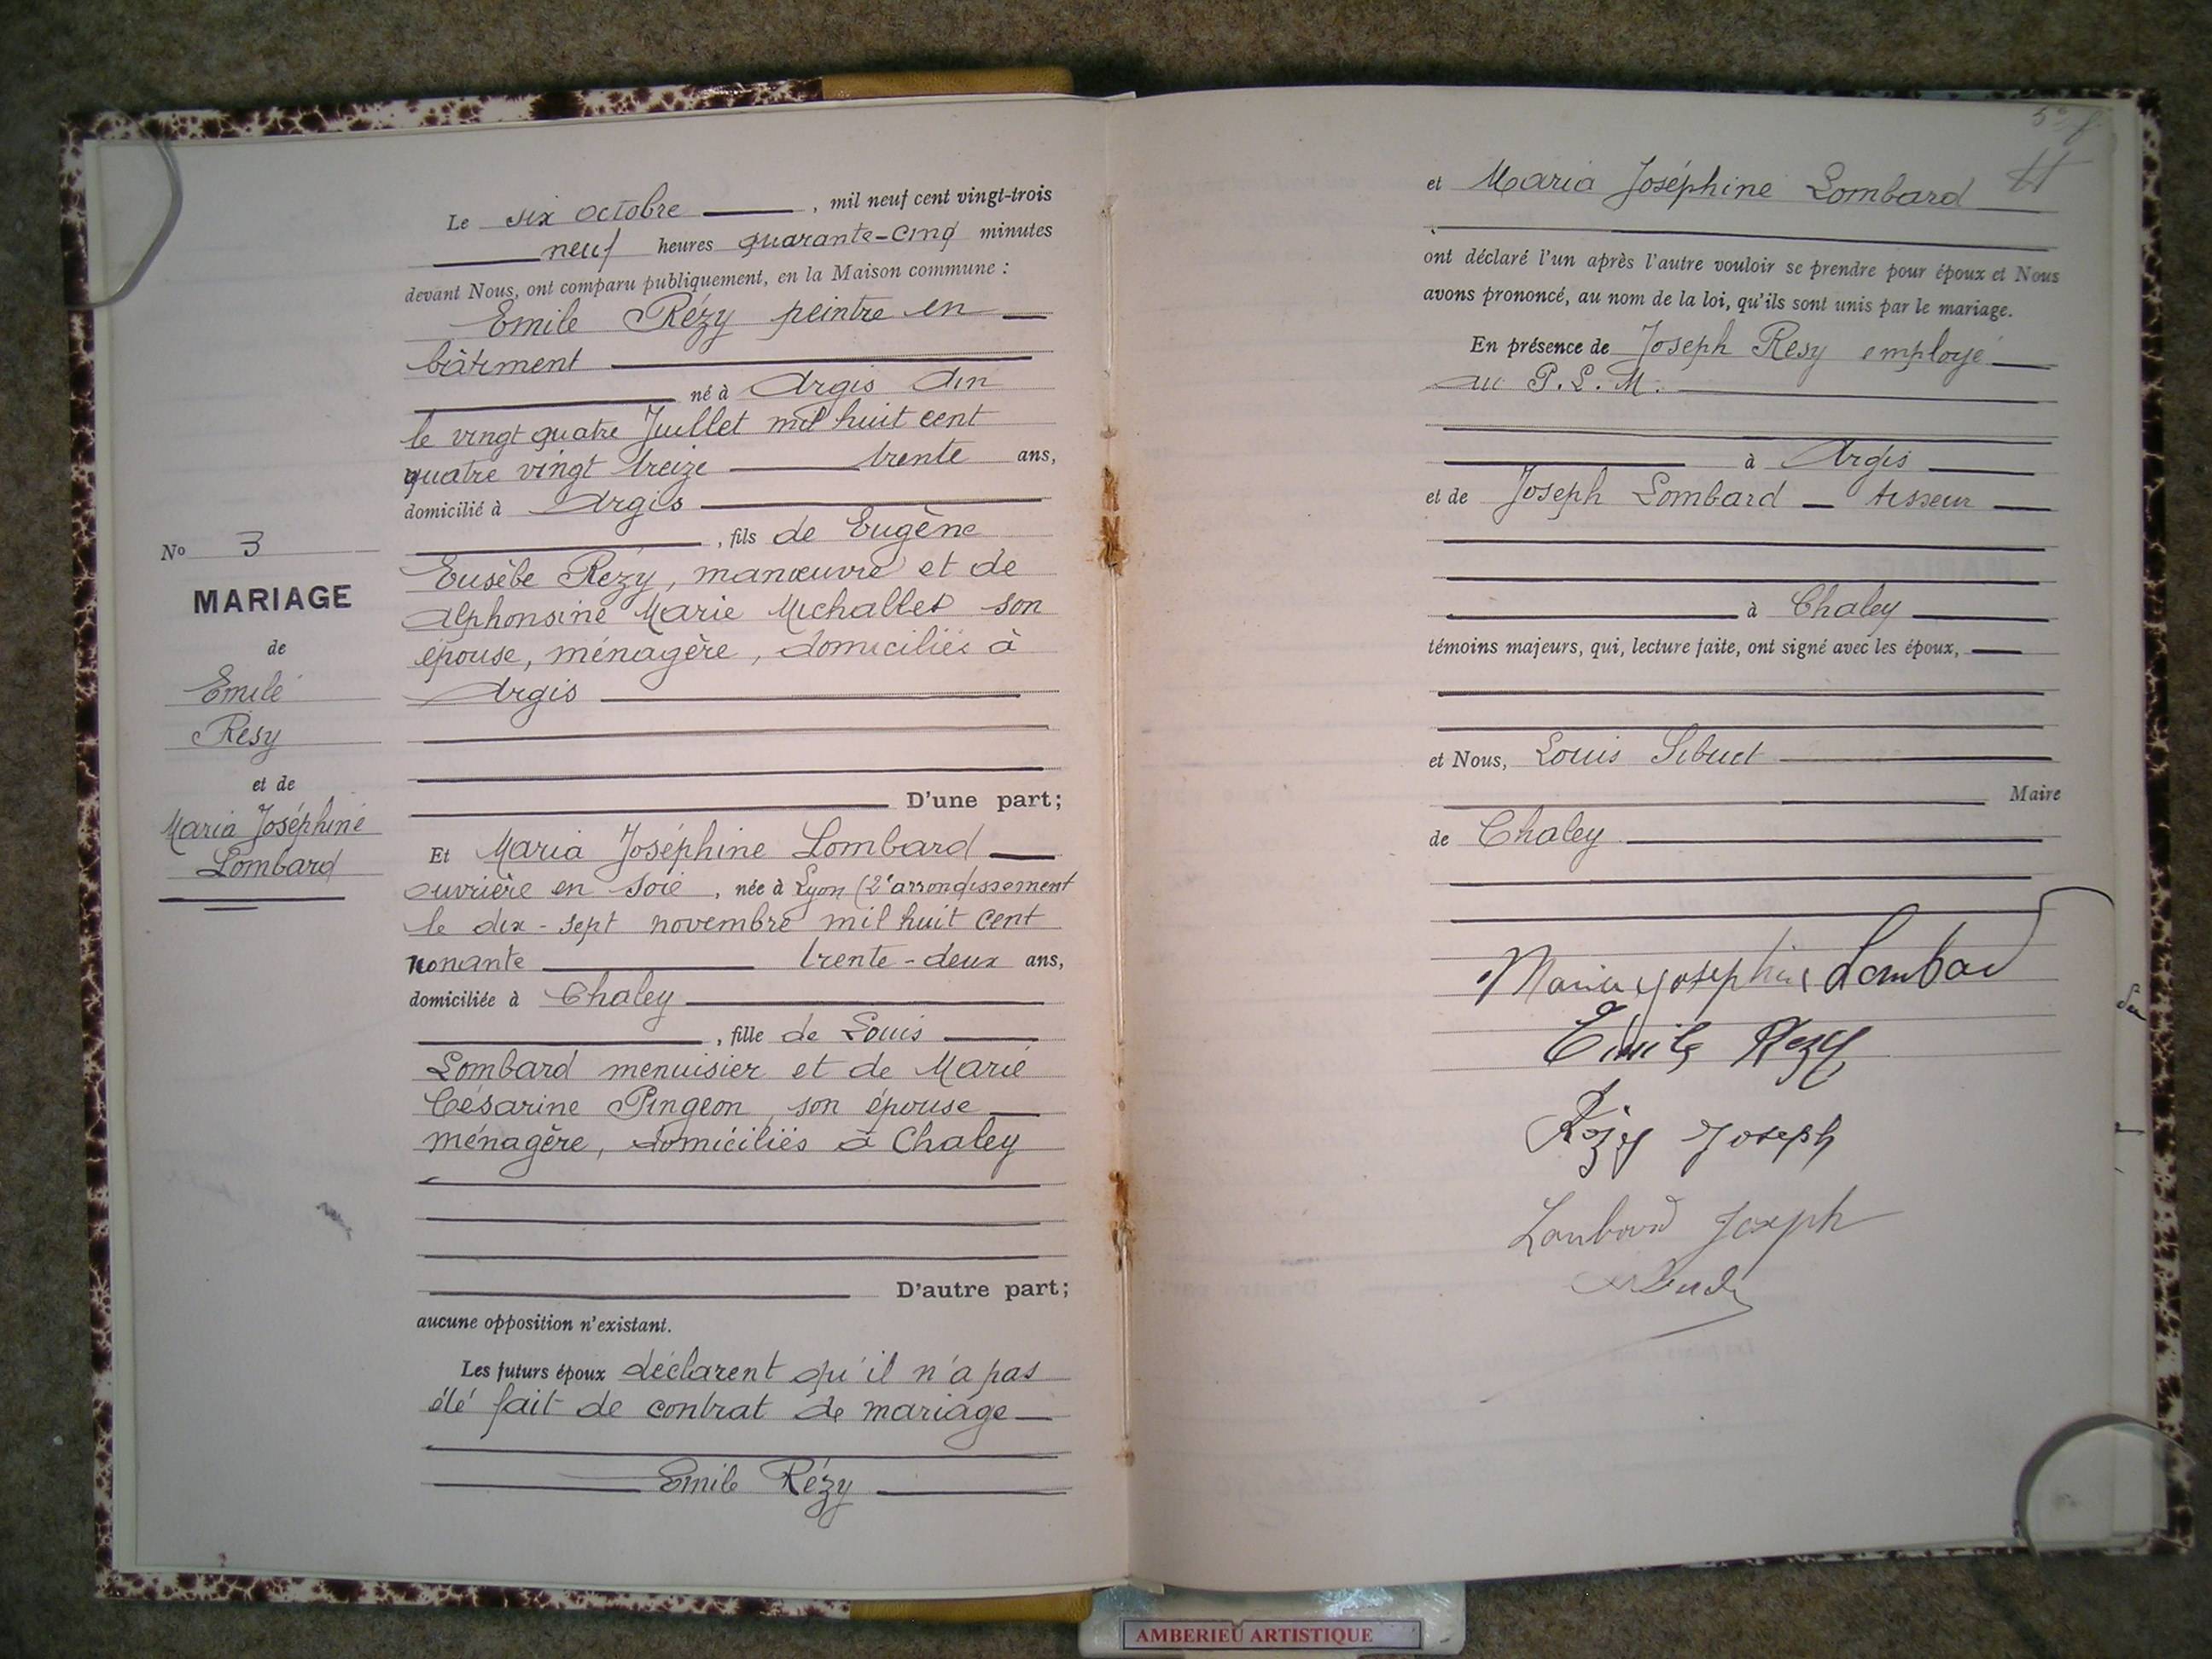 No 3
MARIAGE
de
Emile
Résy
et de
Maria Joséphine
Lombard
Le six octobre, mil neuf cent vingt-trois
neuf heures quarante-cinq minutes
devant Nous, ont comparu publiquement, en la Maison commune :
Emile Rézy peintre en
bâtiment
né à Argis Ain
le vingt quatre Juillet mil huit cent
quatre vingt treize trente ans,
domicilié à Argis
, fils de Eugène
Eusèbe Rézy, manœuvre et de
Alphonsine Marie Michallet son
épouse, ménagère, domiciliés à
Argis
D'une part;
Et Maria Joséphine Lombard
ouvrière en soie, née à Lyon (2e arrondissement
le dix-sept novembre mil huit cent
nonante trente-deux ans,
domiciliée à Chaley
, fille de Louis
Lombard menuisier et de Marie
Césarine Pingeon, son épouse
ménagère, domiciliés à Chaley
D'autre part;
aucune opposition n'existant.
Les futurs époux déclarent qu'il n'a pas
été fait de contrat de mariage
Emile Rézy
et Maria Joséphine Lombard
ont déclaré l'un après l'autre vouloir se prendre pour époux et Nous
avons prononcé, au nom de la loi, qu'ils sont unis par le mariage.
En présence de Joseph Resy employé
au P.L.M.
à Argis
et de Joseph Lombard — tisseur
à Chaley
témoins majeurs, qui, lecture faite, ont signé avec les époux,
et Nous, Louis Sibuet
Maire
de Chaley
Maria Josephine Lombard
Emile Rezy
Rézy Joseph
Lombard Joseph
AMBERIEU ARTISTIQUE